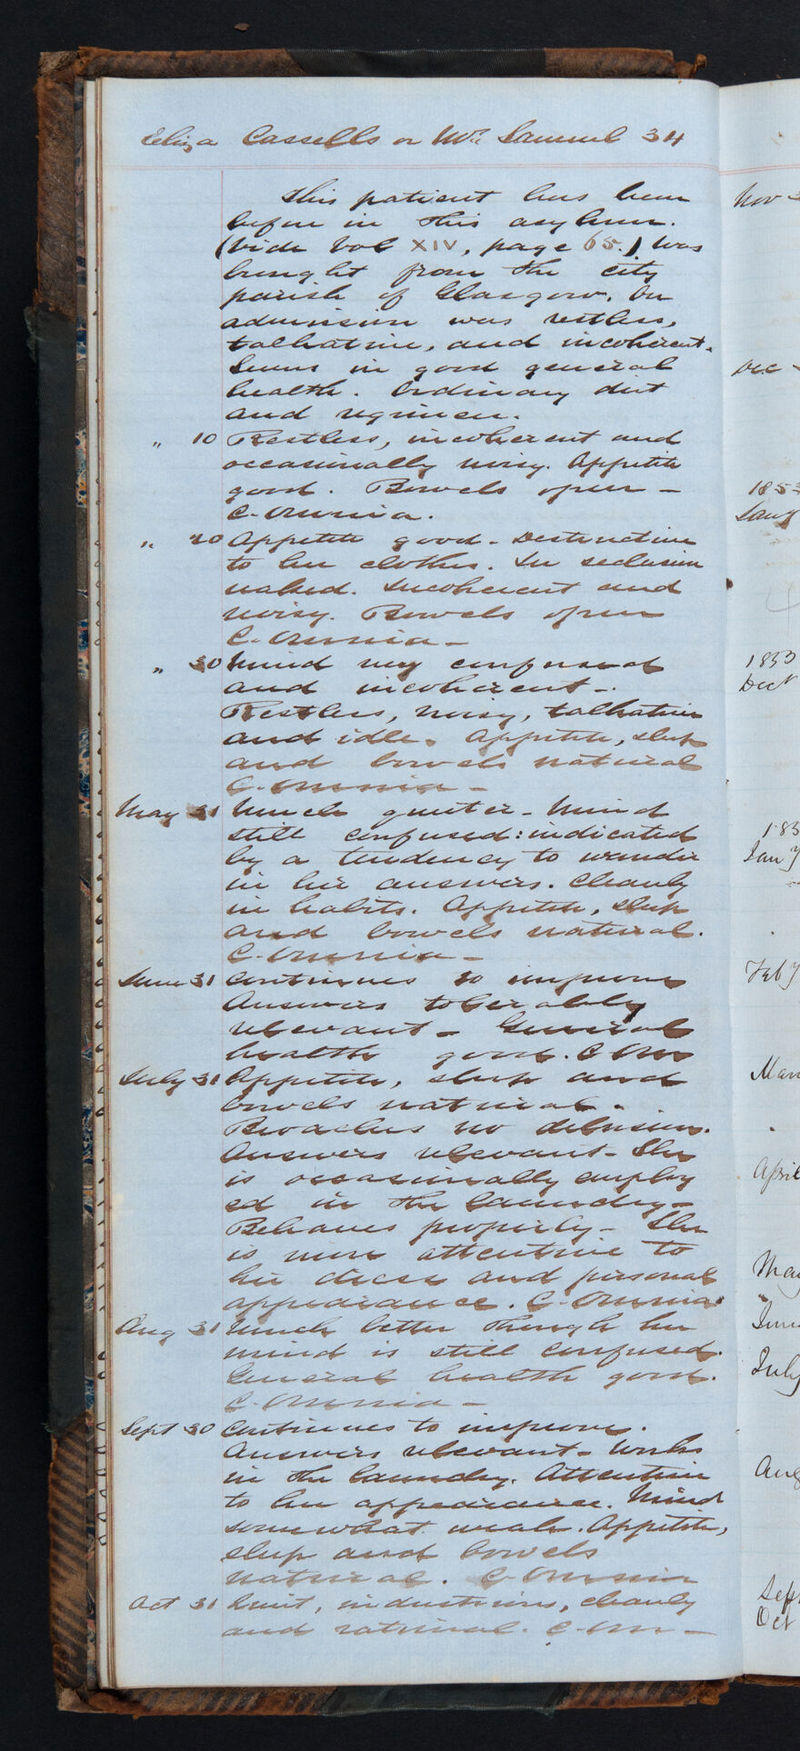 Eliza Cassells or Mrs Samuel 34
This patient has been
before in this asylum.
(Vide Vol XIV, page 65.) Was
brought from the city
parish of Glasgow. On
admission was restless,
talkative, and incoherent.
Seems in good general
health. Ordinary diet
and regimen.
" 10 Restless, incoherent and
occasionally noisy. Appetite
good. Bowels open –
C. Omnia.
" 20 Appetite good – Destructive
to her clothes. In seclusion
naked. Incoherent and
noisy. Bowels open
C. Omnia –
" 30 Mind very confused
and incoherent –
Restless, noisy, talkative
and idle. Appetite, sleep
and bowels natural
C. Omnia –
May 31 Much quieter – Mind
still confused: indicated
by a tendency to wander
in her answers. Cleanly
in habits. Appetite, sleep
and bowels natural.
C. Omnia –
June 31 Continues to improve
Answers tolerably
relevant – General
health good. C Om
July 31 Appetite, sleep and
bowels natural.
Broaches no delusion.
Answers relevant – She
is occasionally employ
ed in the laundry –
Behaves properly – She
is more attentive to
her dress and personal
appearance. C. Omnia
Aug 31 Much better though her
mind is still confused.
General health good.
C. Omnia –
Sept 30 Continues to improve.
Answers relevant – Works
in the laundry. Attentive
to her appearance. Mind
somewhat weak. Appetite,
sleep and bowels
natural. C Omnia
Oct 31 Quiet, industrious, cleanly
and rational. C. Om –
Nov
Dec
185
Jany
1853
Decr
185
Jany
Feby
Mar
April
May
June
July
Aug
Sept
Oct